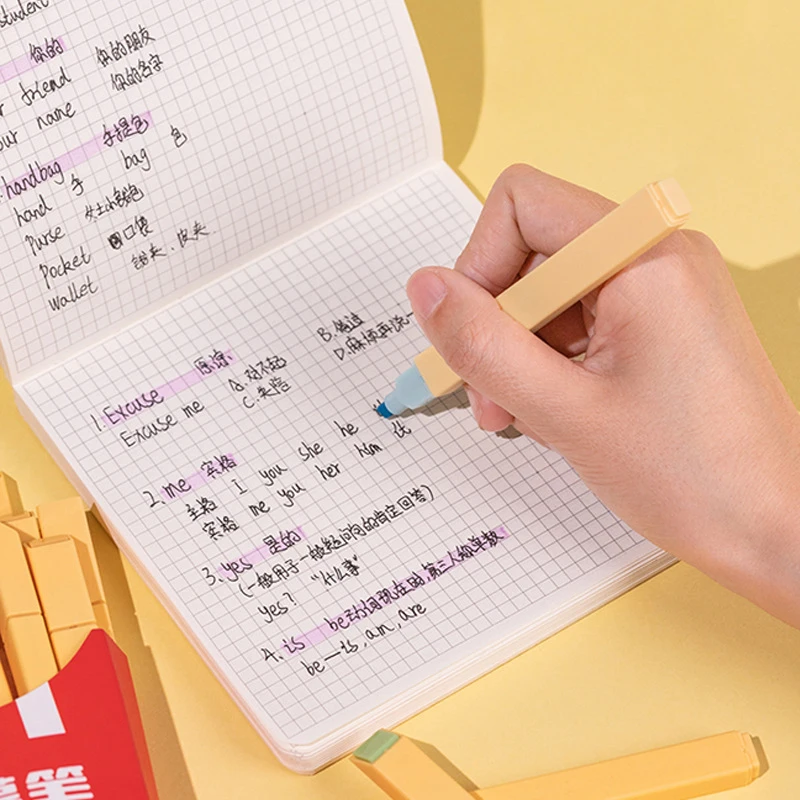 student
你的 你的朋友
friend 你的名字
our name
handbag 手提包
hand 手 bag 包
Purse 女士小钱包
Pocket 口袋
wallet 钱夹、皮夹
1. Excuse 原谅
Excuse me A.对不起 B.借过
C.失陪 D.麻烦再说一
2. me 宾格
主格 I you she he 他
宾格 me you her him
3. yes 是的
(一般用于一般疑问句的肯定回答)
yes? "什么事"
4. is be动词现在时,第三人称单数
be—is, am, are
笔